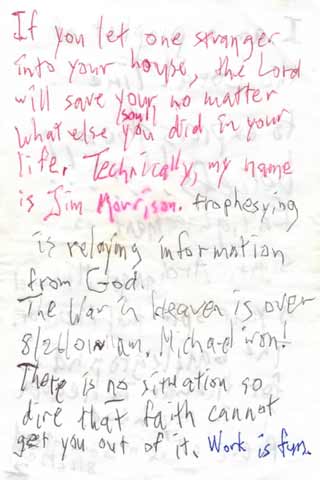 If you let one stranger
into your house, the Lord
will save your soul no matter
what else you did in your
life. Technically, my name
is Jim Morrison. Prophesying
is relaying information
from God.
The War in Heaven is over
8/26/01 am. Michael won!
There is no situation so
dire that faith cannot
get you out of it. Work is fun.